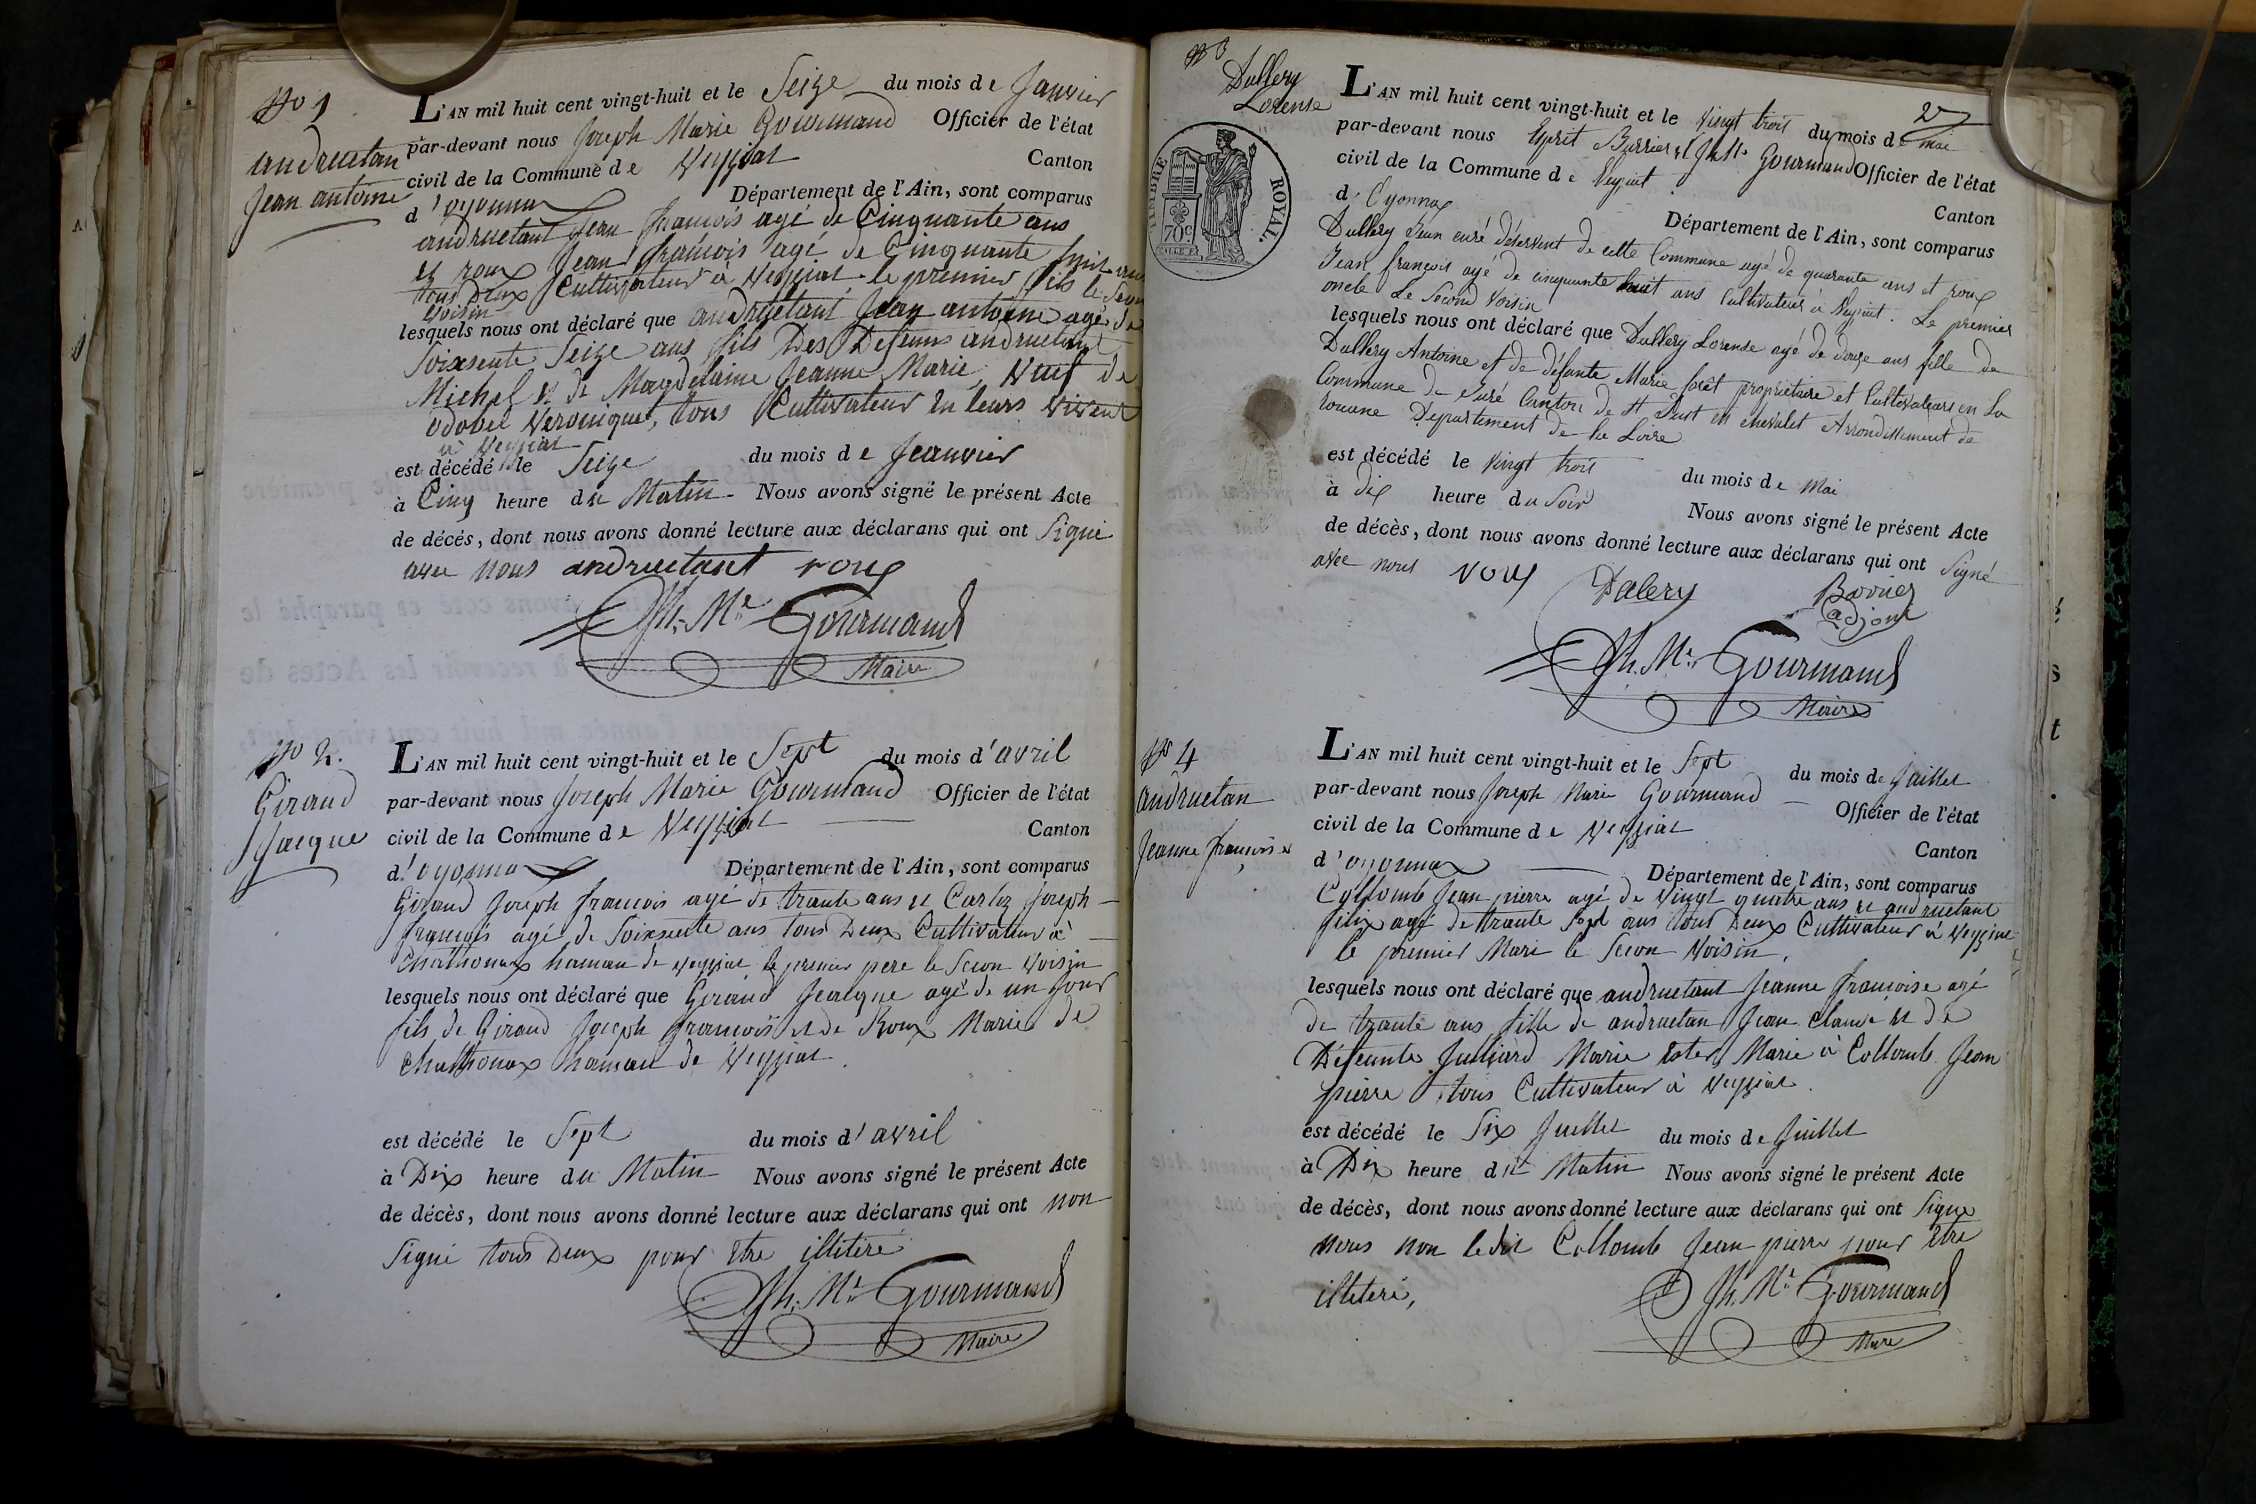 No 1
andructan
Jean antoine
L'AN mil huit cent vingt-huit et le Seize du mois de Janvier
par-devant nous Joseph Marie Gourmand Officier de l'état
civil de la Commune de Veyziat Canton
d'oyonnax Département de l'Ain, sont comparus
andructant Jean francois agé de Cinquante ans
et roux Jean francois agé de Cinquante huit ans
tous Deux Cultivateur à Veyziat le premier fils le Secon
Voisin
lesquels nous ont déclaré que andructant Jean antoine agé de
Soixsente Seize ans fils Des Defunts andructant
Michel et de Magdelaine Jeanne Marie, Veuf de
odobel Veronique, tous Cultivateur en leurs vivent
à Veyziat
est décédé le Seize du mois de Jeanvier
à Cinq heure du Matin. Nous avons signé le présent Acte
de décés, dont nous avons donné lecture aux déclarans qui ont Signé
avec nous andructant roux
Jh. Mie Gourmand
Maire
No 2.
Giraud
Jacque
L'AN mil huit cent vingt-huit et le Sept du mois d'avril
par-devant nous Joseph Marie Gourmand Officier de l'état
civil de la Commune de Veyziat Canton
d'oyonnax Département de l'Ain, sont comparus
Giraud Joseph francois agé de trante ans et Carloz Joseph
francois agé de Soixsente ans tous Deux Cultivateur à
Chatonnax hamau de Veyziat le premier pere le Secon Voisin
lesquels nous ont déclaré que Giraud Jeacque agé de un jour
fils de Giraud Joseph francois et de Roux Marie de
Chattonax hamau de Veyziat.
est décédé le Sept du mois d'avril
à Dix heure du Matin Nous avons signé le présent Acte
de décès, dont nous avons donné lecture aux déclarans qui ont non
Signé tous Deux pour Etre illiteré
Jh. Mie Gourmand
Maire
No 3
Dullery
Lorense
TIMBRE ROYAL.
70c.
2
L'AN mil huit cent vingt-huit et le Vingt trois du mois de mai
par-devant nous Esprit Burrier et Jh Me Gourmand Officier de l'état
civil de la Commune de Veyziat Canton
d'Oyonnax Département de l'Ain, sont comparus
Dullery Jean curé déservent de cette Commune agé de quarante ans et roux
Jean françois agé de cinquante huit ans Cultivateur à Veyziat. Le premier
oncle Le Second Voisin
lesquels nous ont déclaré que Dullery Lorense agé de douze ans fille de
Dullery Antoine et de défunte Marie forêt propriétaire et Cultivateurs en La
Commune de Juré Canton de St Just en chevalet Arrondissement de
rouane Département de la Loire
est décédé le Vingt trois du mois de Mai
à dix heure du Soir Nous avons signé le présent Acte
de décès, dont nous avons donné lecture aux déclarans qui ont Signé
avec nous roux Dalery Bovrier
adjoint
Jh. Me. Gourmand
Maire
No 4
andructan
Jeanne françoise
L'AN mil huit cent vingt-huit et le Sept du mois de Juillet
par-devant nous Joseph Marie Gourmand Officier de l'état
civil de la Commune de Veyziat Canton
d'oyonnax Département de l'Ain, sont comparus
Collomb Jean pierre agé de Vingt quatre ans et andructant
felix agé de trante Sept ans tous Deux Cultivateur à Veyziat
le premier Mari le Secon Voisin,
lesquels nous ont déclaré que andructant Jeanne francoise agé
de trante ans fille de andructan Jean Claude et de
Defeunte Julliard Marie Ester Marié à Collomb Jean
pierre tous Cultivateur à Veyziat.
est décédé le Six Juillet du mois de Juillet
à Dix heure du Matin Nous avons signé le présent Acte
de décès, dont nous avons donné lecture aux déclarans qui ont Signé
nous non ledit Collomb Jean pierre pour Etre
illiteré,
Jh. Mie Gourmand
Maire